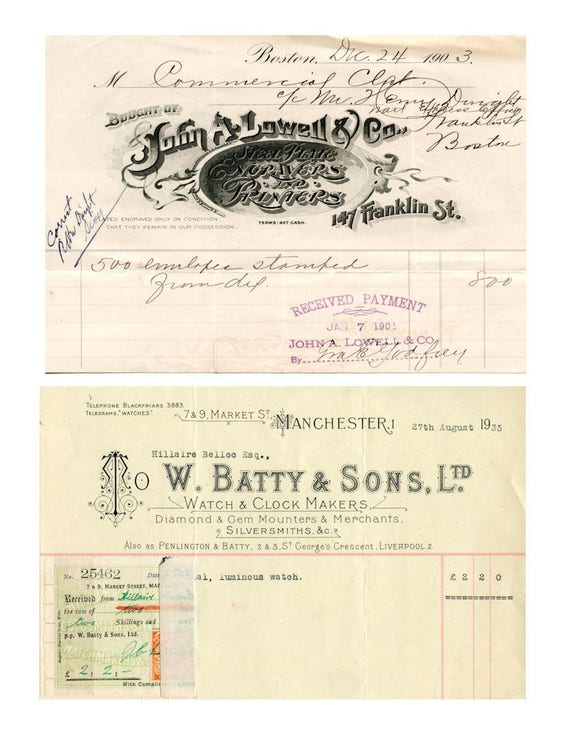 Boston, Dec. 24 1903.
M Commercial Clpt.
c/o Mr. Henry Dwight
Franklin St
Boston
BOUGHT OF
John A. Lowell & Co.,
STEEL PLATE
ENGRAVERS
AND
PRINTERS
147 Franklin St.
PLATES ENGRAVED ONLY ON CONDITION
THAT THEY REMAIN IN OUR POSSESSION.
TERMS: NET CASH.
Correct
500 envelopes stamped
from die. 800
RECEIVED PAYMENT
JAN 7 1901
JOHN A. LOWELL & CO.
By Godfrey
TELEPHONE BLACKFRIARS 3883.
TELEGRAMS. "WATCHES".
7 & 9, MARKET ST.
MANCHESTER,1 27th August 1935
Hillaire Belloc Esq.,
To W. BATTY & SONS, LTD.
WATCH & CLOCK MAKERS,
Diamond & Gem Mounters & Merchants,
SILVERSMITHS, &c.
Also as PENLINGTON & BATTY, 2 & 3, ST. George's Crescent, LIVERPOOL 2.
No. 25462 Date
7 & 9, MARKET STREET, MA
Received from Hillaire
the sum of two
two Shillings and
p.p. W. Batty & Sons, Ltd.
£ 2 : 2 : -
With Compli
al, luminous watch. £ 2 2 0